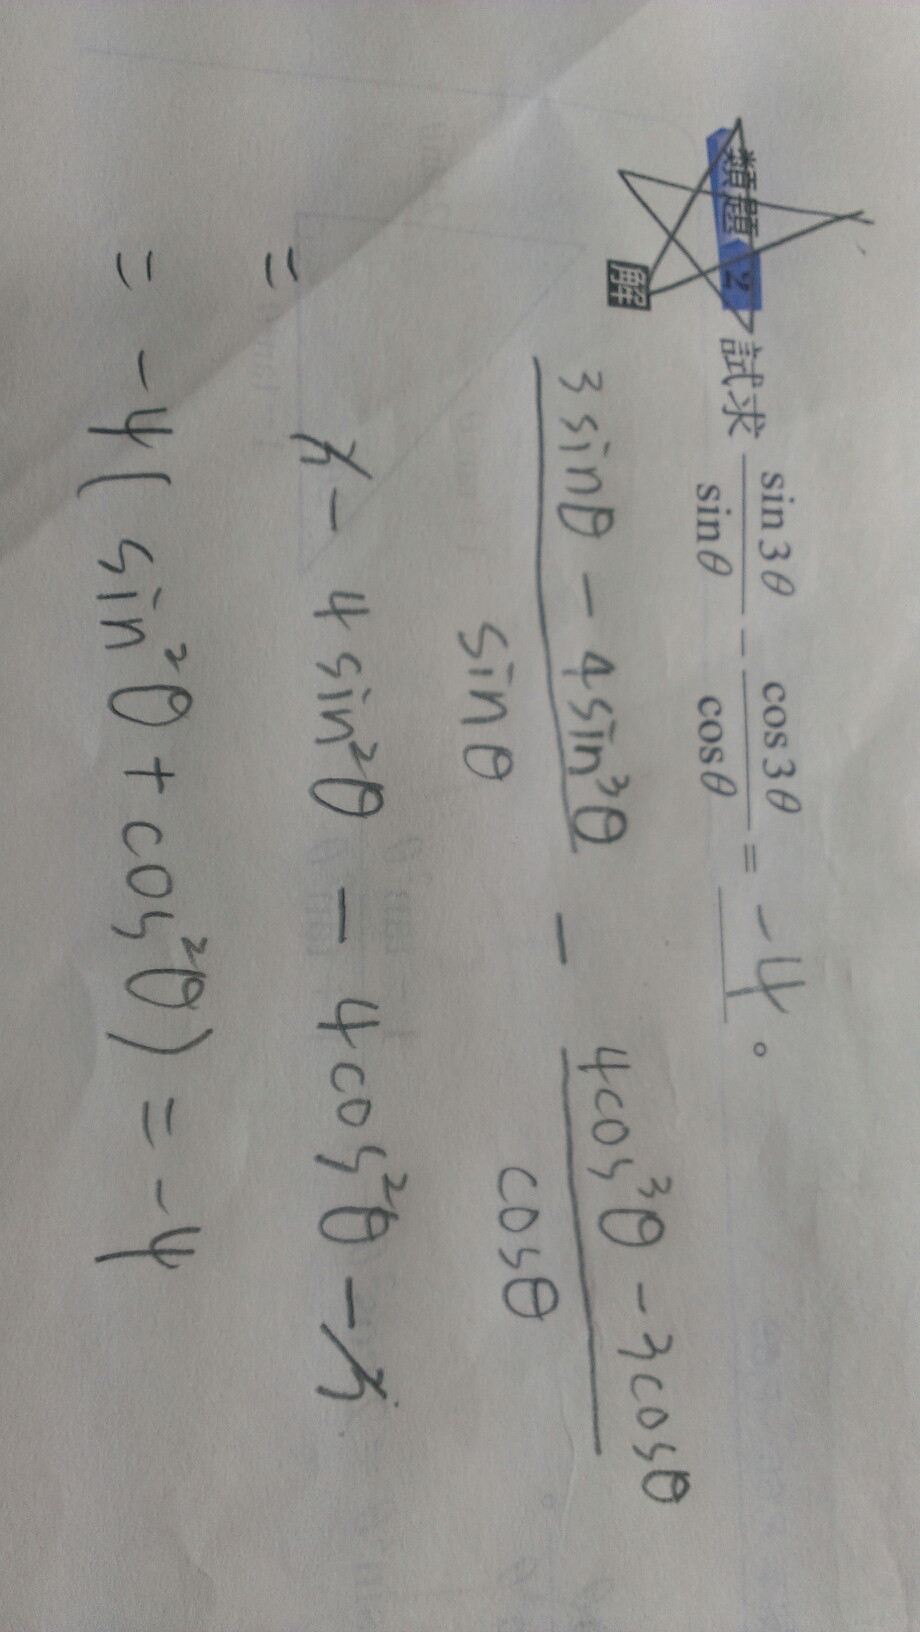 類題 2 試求 sin3θ/sinθ − cos3θ/cosθ = −4 。
解
3sinθ − 4sin³θ/sinθ − 4cos³θ − 3cosθ/cosθ
= 3 − 4sin²θ − 4cos²θ − 3
= −4(sin²θ + cos²θ) = −4